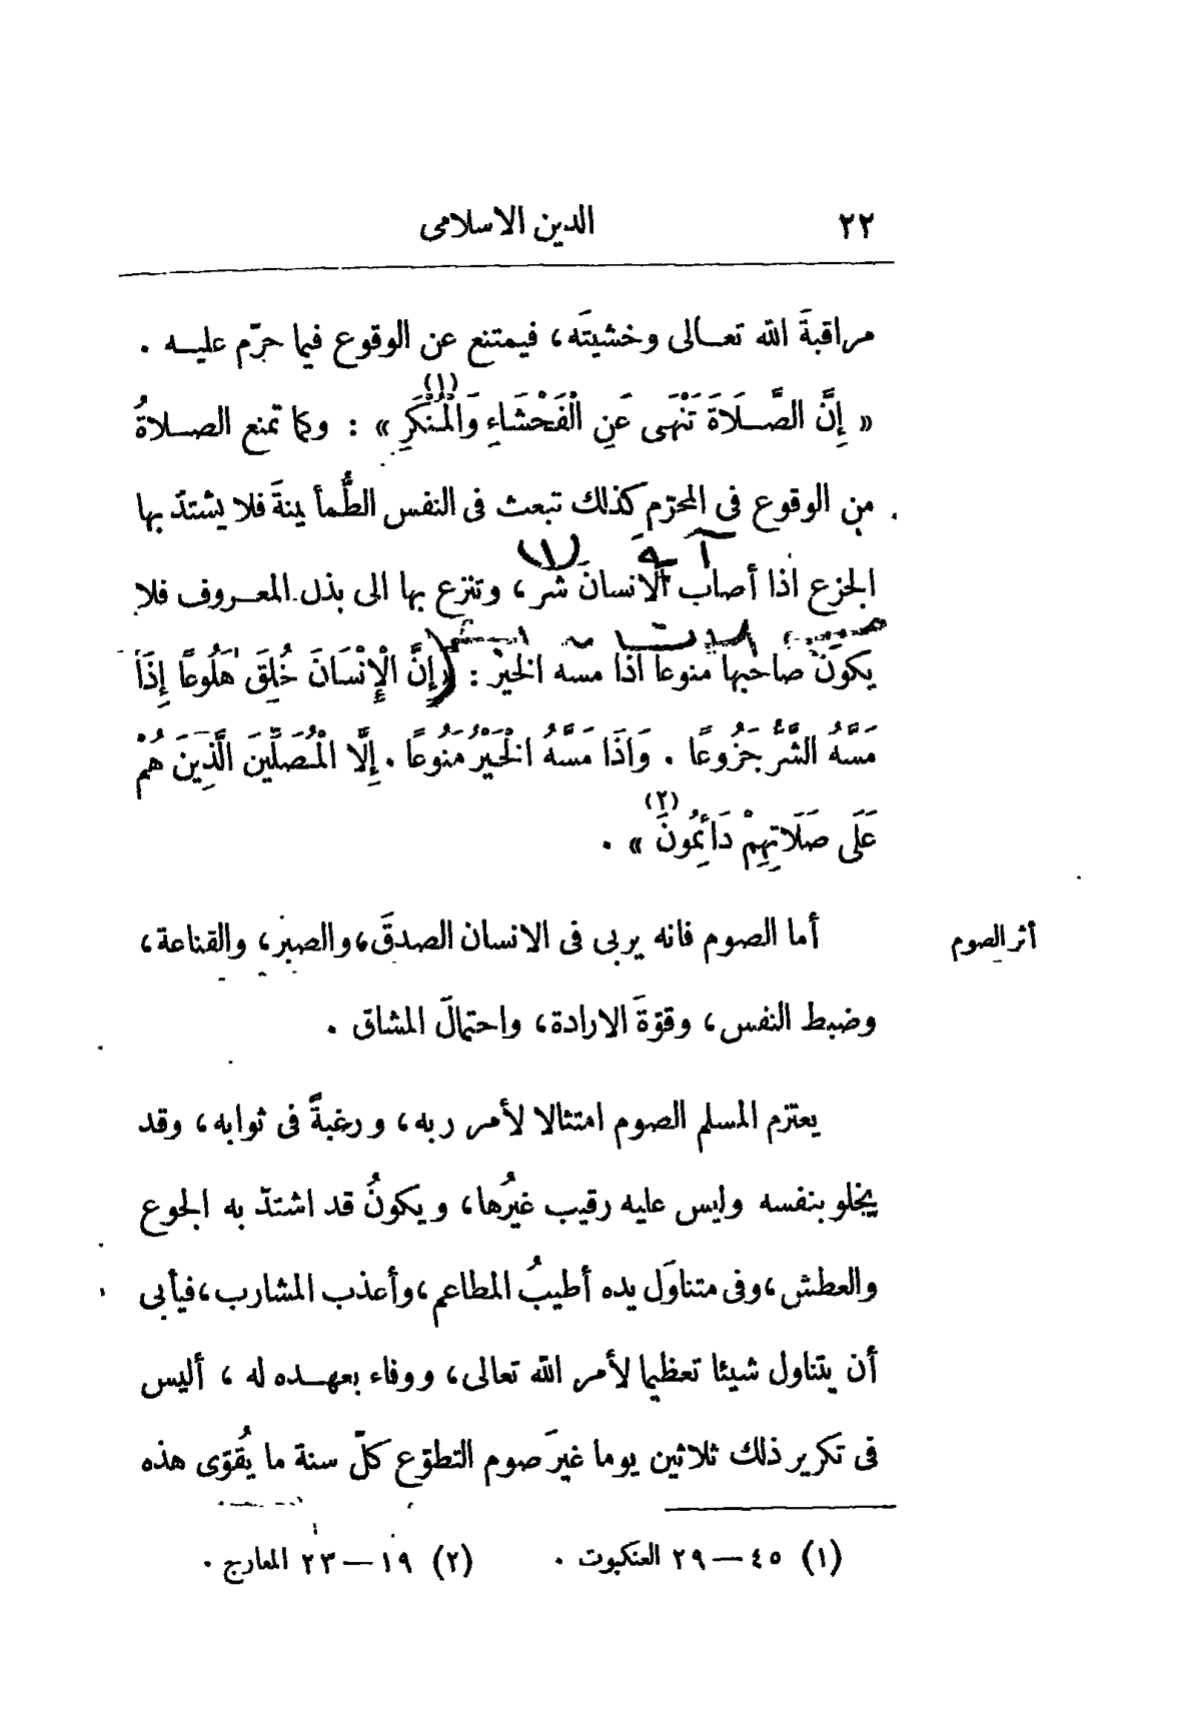 ٢٢
الدين الاسلامى
مراقبةَ الله تعالى وخشيتَه، فيمتنع عن الوقوع فيما حرّم عليه .
« إِنَّ الصَّلَاةَ تَنْهَى عَنِ الْفَحْشَاءِ وَالْمُنْكَرِ (١) » : وكما تمنع الصلاةُ
من الوقوع فى المحرّم كذلك تبعث فى النفس الطُّمأنينةَ فلا يشتدّ بها
الجزع اذا أصاب الانسانَ شر، وتنزع بها الى بذل المعروف فلا
يكون صاحبها منوعا اذا مسه الخير : « إِنَّ الْإِنْسَانَ خُلِقَ هَلُوعًا إِذَا
مَسَّهُ الشَّرُّ جَزُوعًا . وَاذَا مَسَّهُ الْخَيْرُ مَنُوعًا . إِلَّا الْمُصَلِّينَ الَّذِينَ هُمْ
عَلَى صَلَاتِهِمْ دَائِمُونَ (٢) » .
أثر الصوم
أما الصوم فانه يربى فى الانسان الصدقَ، والصبر، والقناعة،
وضبط النفس، وقوّةَ الارادة، واحتمالَ المشاق .
يعتزم المسلم الصوم امتثالا لأمر ربه، ورغبةً فى ثوابه، وقد
يخلو بنفسه وليس عليه رقيب غيرُها، ويكونُ قد اشتدّ به الجوع
والعطش، وفى متناوَل يده أطيبُ المطاعم، وأعذب المشارب، فيأبى
أن يتناول شيئا تعظيما لأمر الله تعالى، ووفاء بعهده له ، أليس
فى تكرير ذلك ثلاثين يوما غيرَ صوم التطوّع كلّ سنة ما يُقوّى هذه
(١) ٤٥ — ٢٩ العنكبوت . (٢) ١٩ — ٢٣ المعارج .